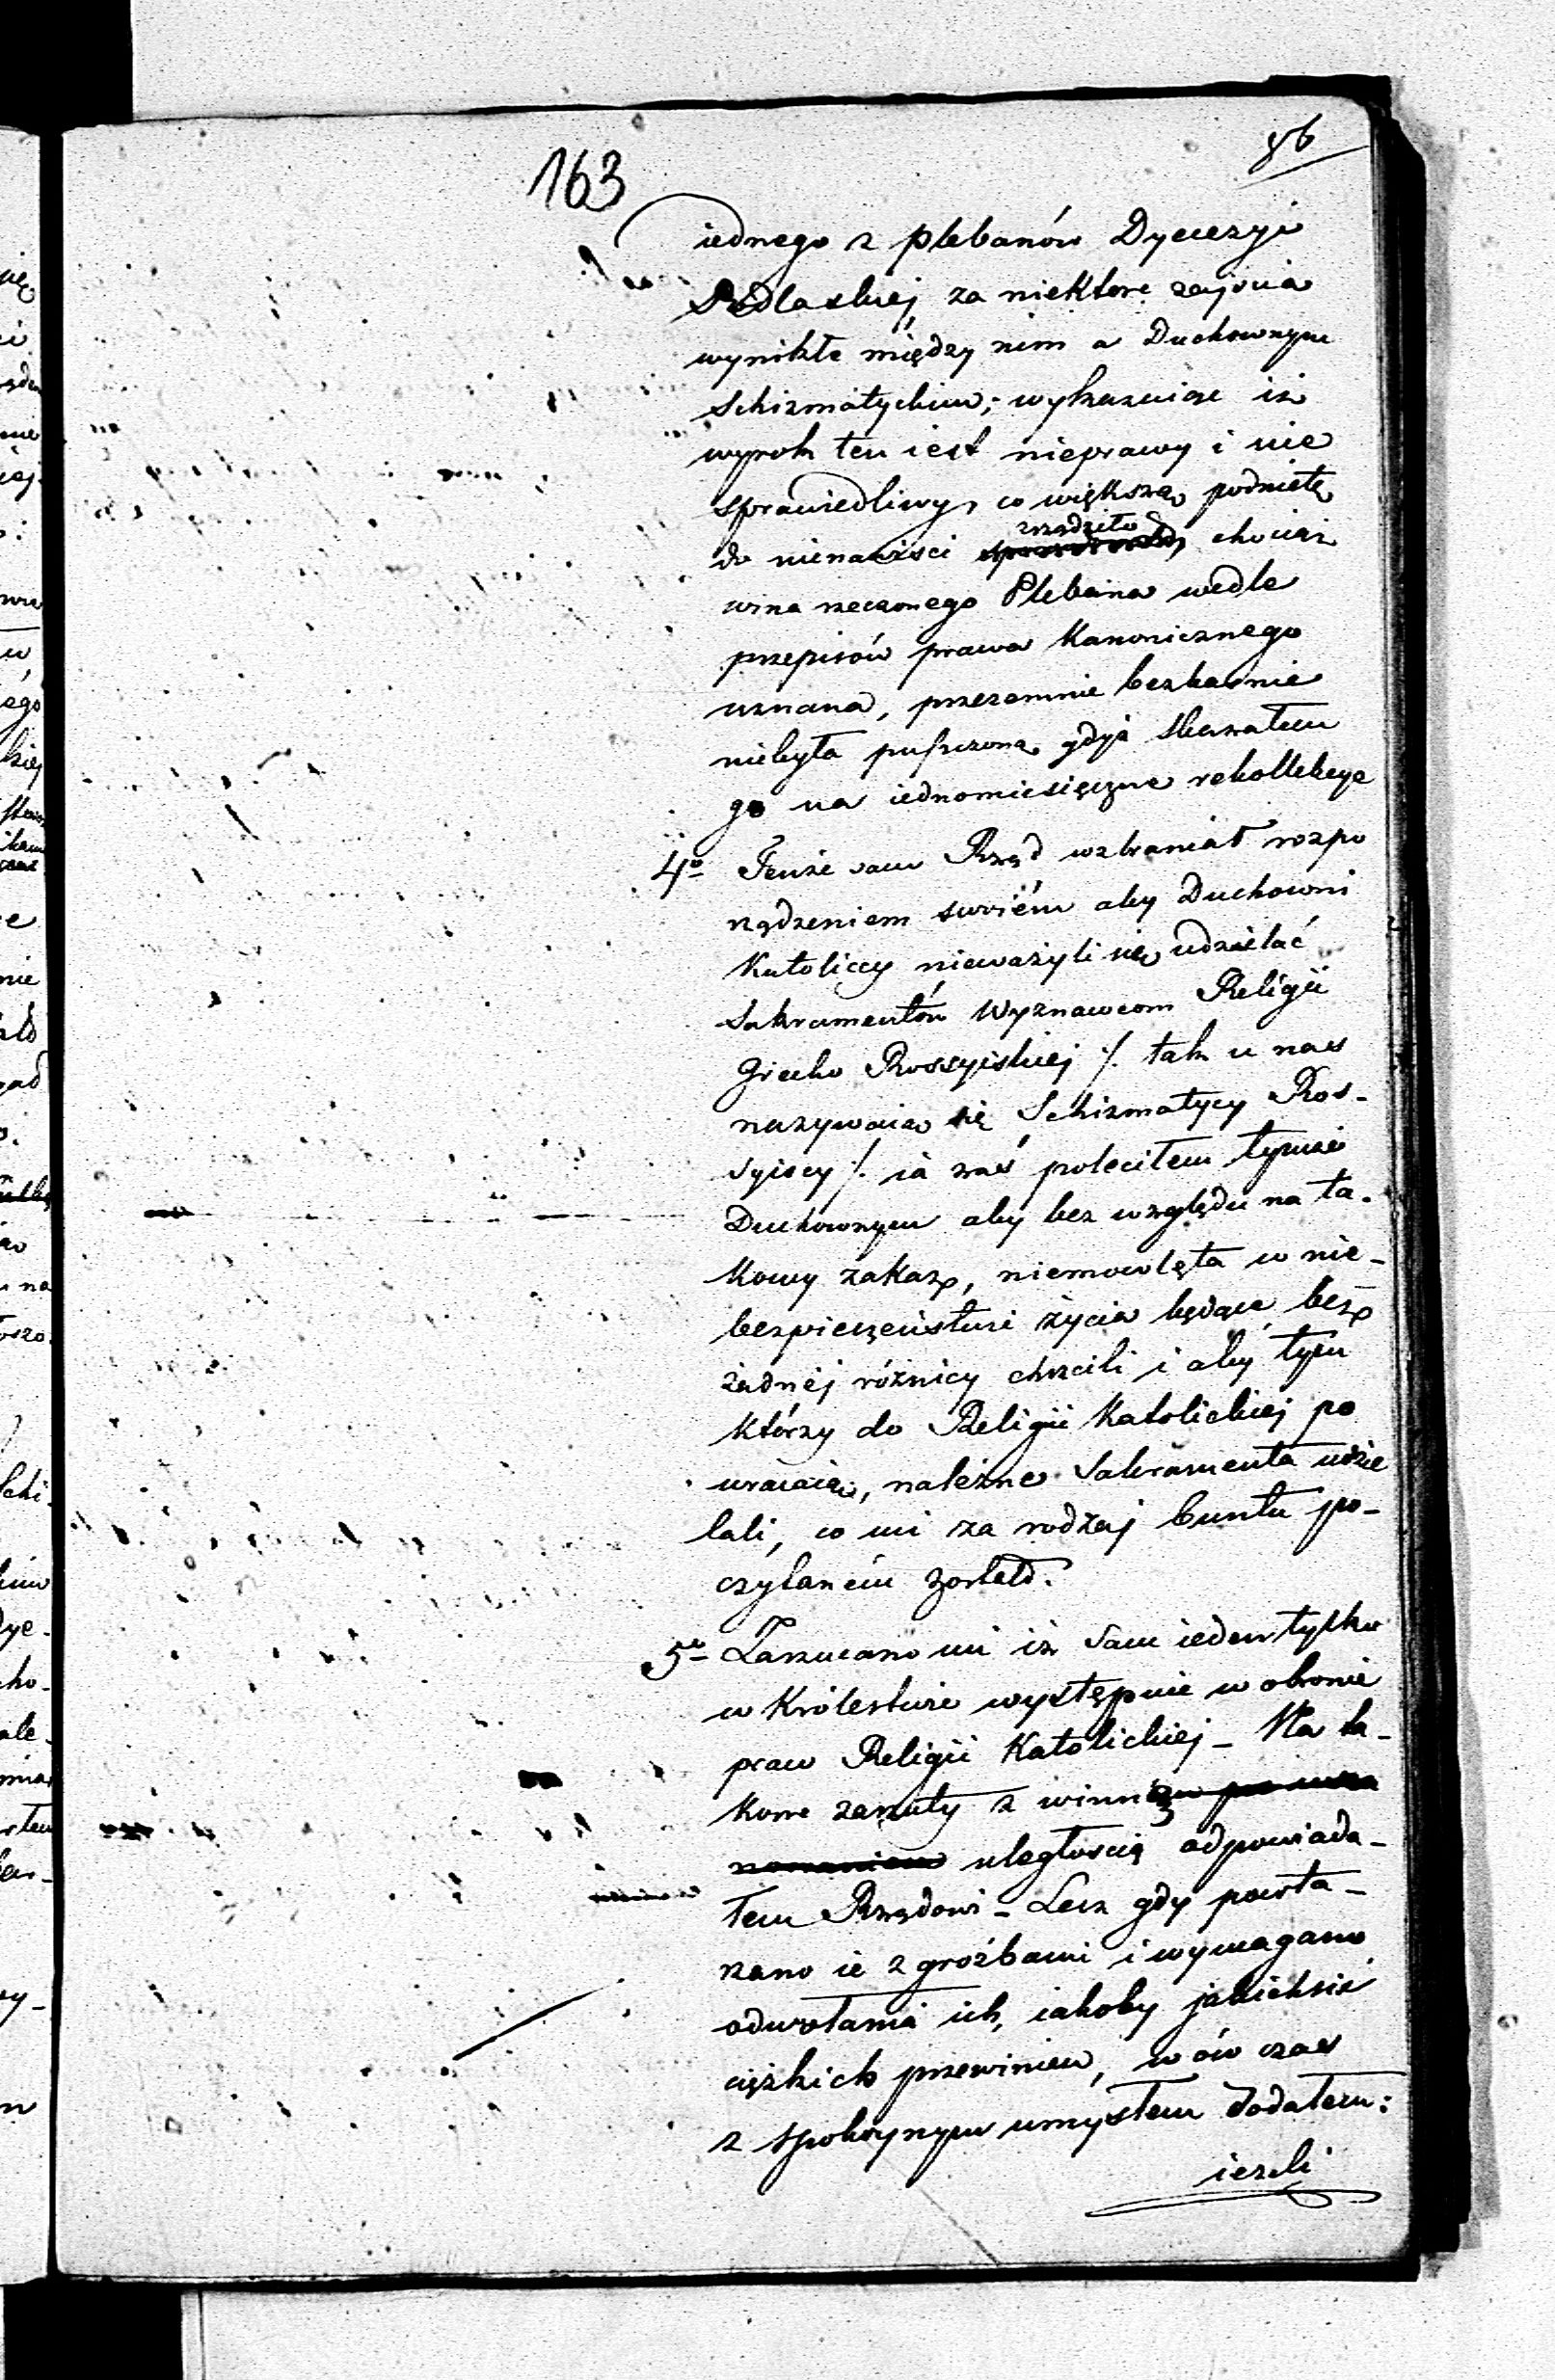 163
86
iednego z plebanów Dyecezyi
Podlaskiej za niektóre zajścia
wynikłe między nim a Duchownym
Schizmatyckim; wykazuiąc iż
wyrok ten iest nieprawy i nie
sprawiedliwy, co większą podnietę
zrządziło
do nienawiści chociaż
wina rzeczonego Plebana wedle
przepisów prawa Kanonicznego
uznana, przezemnie bezkarnie
niebyła puszczoną gdyż skazałem
go na iednomiesięczne rekollekcye
4o Tenże sam Rząd wzbraniał rozpo
rządzeniem swoiém aby Duchowni
Katoliccy nieważyli się udzielać
Sakramentów Wyznawcom Religii
Grecko Rossyiskiej /. tak u nas
nazywaią się Schizmatycy Ros-
syiscy /. ia zaś poleciłem tymże
Duchownym aby bez względu na ta-
kowy zakaz, niemowlęta w nie-
bezpieczeństwie życia będące bez
żadnéj różnicy chrzcili i aby tym
którzy do Religii Katolickiej po
wracaią, należne Sakramenta udzie
lali, co mi za rodzaj buntu po-
czytaném zostało.
5o Zarzucano mi iż sam ieden tylko
w Królestwie występuie w obronie
praw Religii Katolickiej - Na ta-
kowe zarzuty z winną
uległością odpowiada-
łem Rządowi - Lecz gdy powta-
rzano ie z groźbami i wymagano
odwołania ich, iakoby jakichsiś
ciężkich przewinień, w ów czas
z spokoynym umysłem dodałem:
ieżeli